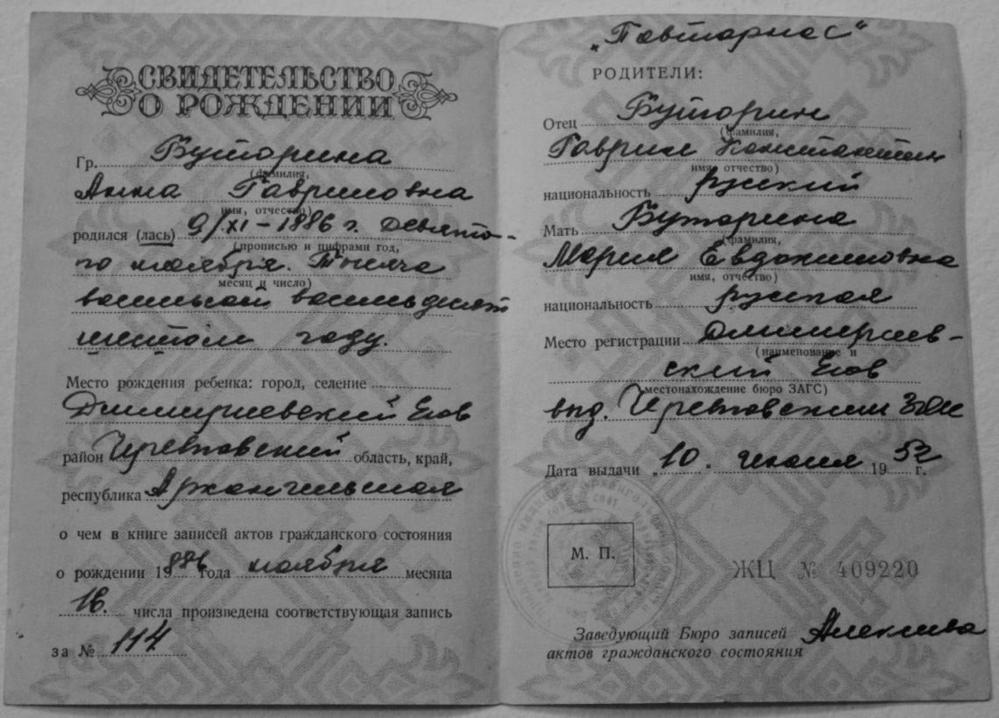 СВИДЕТЕЛЬСТВО
О РОЖДЕНИИ
Гр. Буторина
(фамилия,
Анна Гавриловна
имя, отчество)
родился (лась) 9/XI – 1886 г. Девято-
(прописью и цифрами год,
го ноября. Тысяча
месяц и число)
восемьсот восемьдесят
шестом году.
Место рождения ребенка: город, селение
Дмитриевский Егов
район Черевковский область, край,
республика Архангельская
о чем в книге записей актов гражданского состояния
о рождении 1886 года ноября месяца
16. числа произведена соответствующая запись
за № 114
„Повторное“
РОДИТЕЛИ:
Отец Буторин
(фамилия,
Гаврил Константин
имя, отчество)
национальность русский
Мать Буторина
(фамилия,
Мария Евдокимовна
имя, отчество)
национальность русская
Место регистрации Дмитриев-
(наименование и
ский Егов
местонахождение бюро ЗАГС)
выд. Черевковским ЗАГС
Дата выдачи „10. июля 1952 г.
М. П.
ЖЦ № 409220
Заведующий Бюро записей
актов гражданского состояния